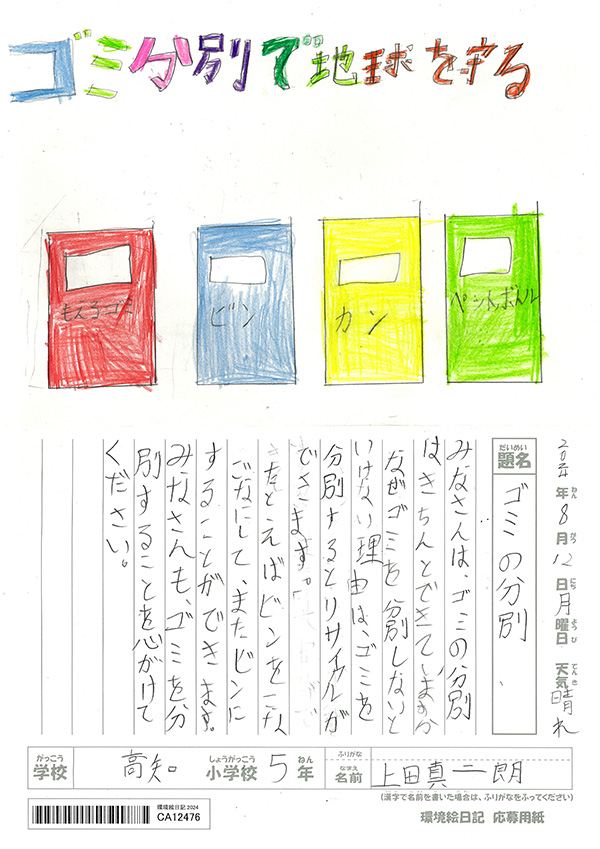 ゴミ分別で地球を守る
もえるゴミ
ビン
カン
ペットボトル
2024年8月12日月曜日 天気晴れ
ねん
がつ
にち
ようび
てんき
だいめい
題名
ゴミの分別
みなさんは、ゴミの分別
はきちんとできていますか
なぜゴミを分別しないと
いけない理由は、ゴミを
分別するとリサイクルが
できます。
たとえばビンをこな
ごなにして、またビンに
することができます。
みなさんも、ゴミを分
別することを心がけて
ください。
がっこう
学校
高知
しょうがっこう
小学校
5年
ねん
ふりがな
なまえ
名前
上田真二朗
(漢字で名前を書いた場合は、ふりがなをふってください)
環境絵日記 2024
CA12476
環境絵日記 応募用紙